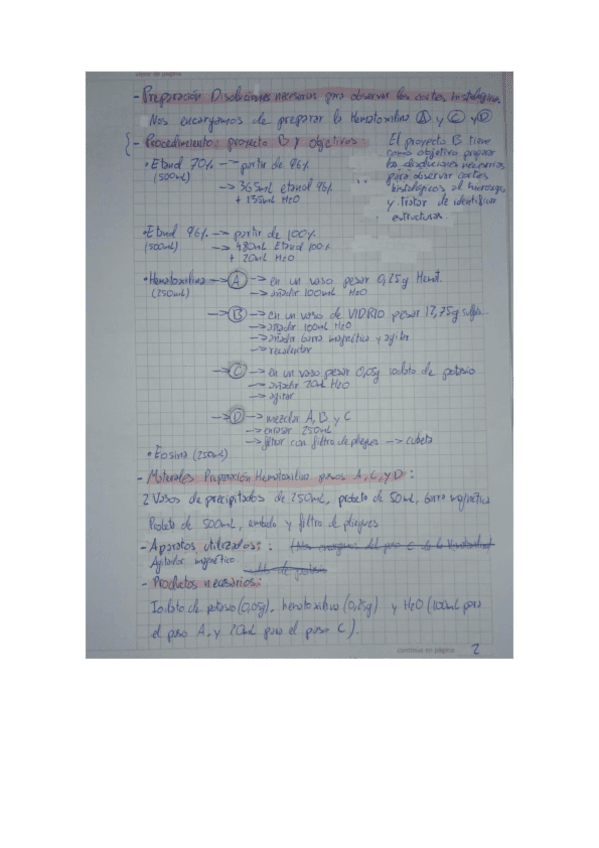 viene de página
- Preparación Disoluciones necesarias para observar los cortes histológicos.
Nos encargamos de preparar la Hematoxilina A y C y D
- Procedimientos proyecto B y objetivos:
El proyecto B tiene
como objetivo preparar
las disoluciones necesarias
para observar cortes
histológicos al microscopio
y tratar de identificar
estructuras.
• Etanol 70% → partir de 96%
(500mL) → 365mL etanol 96%
+ 135mL H2O
• Etanol 96% → partir de 100%
(500mL) → 480mL Etanol 100%
+ 20mL H2O
• Hematoxilina → A → en un vaso pesar 0,25g Hemat.
(250mL) → añadir 100mL H2O
→ B → en un vaso de VIDRIO pesar 12,75g
→ añadir 100mL H2O
→ añadir barra magnética y agitar
→ recalentar
→ C → en un vaso pesar 0,05g iodato de potasio
→ añadir 20mL H2O
→ agitar
→ D → mezclar A, B y C
→ enrasar 250mL
→ filtrar con filtro de pliegues → cubeta
• Eosina (250mL)
- Materiales Preparación Hematoxilina pasos A, C, y D:
2 Vasos de precipitados de 250mL, probeta de 50mL, barra magnética
Probeta de 500mL, embudo y filtro de pliegues
- Aparatos utilizados:
Agitador magnético
- Productos necesarios:
Iodato de potasio (0,05g), hematoxilina (0,25g) y H2O (100mL para
el paso A, y 20mL para el paso C).
continúa en página 2